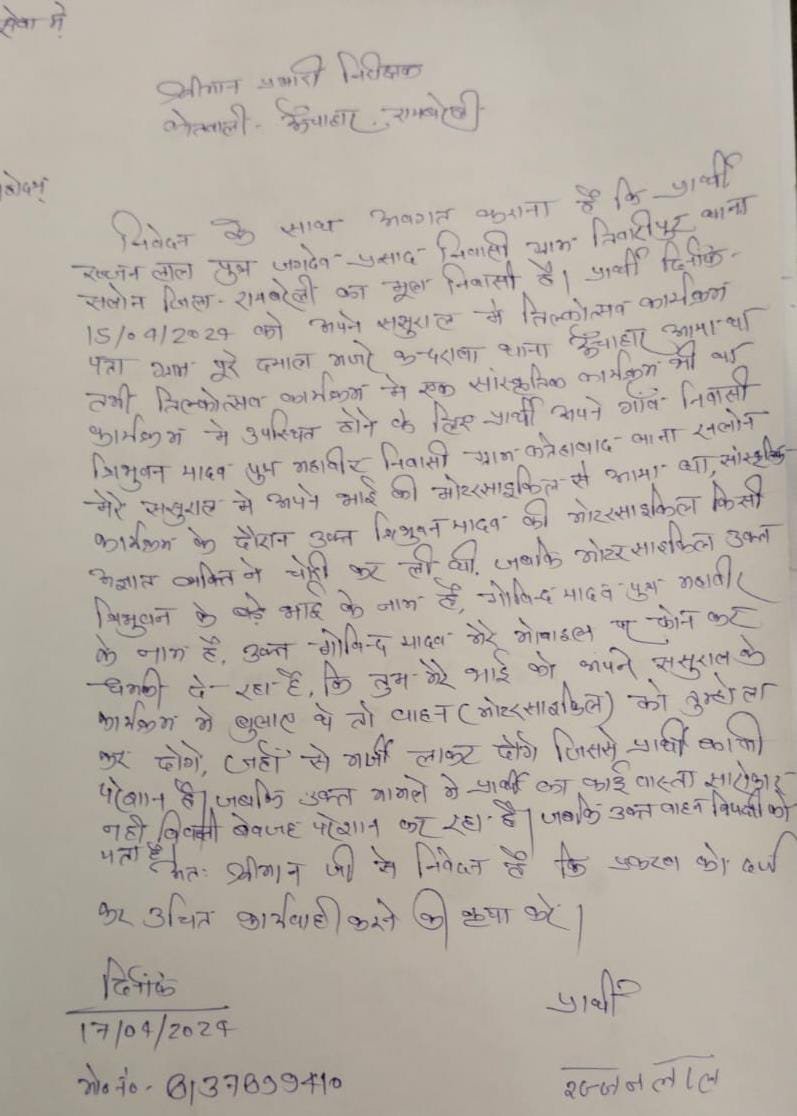 सेवा में
श्रीमान प्रभारी निरीक्षक
कोतवाली - ऊँचाहार, रायबरेली
निवेदन के साथ अवगत कराना है कि प्रार्थी
रज्जन लाल पुत्र जगदेव प्रसाद निवासी ग्राम तिवारीपुर थाना
सलोन जिला - रायबरेली का मूल निवासी है। प्रार्थी दिनांक -
15/04/2024 को अपने ससुराल में तिलकोत्सव कार्यक्रम
पता ग्राम पूरे दयाल मजरे कन्दरावा थाना ऊँचाहार आया था
तभी तिलकोत्सव कार्यक्रम मे एक सांस्कृतिक कार्यक्रम भी था
कार्यक्रम मे उपस्थित होने के लिए प्रार्थी अपने गाँव निवासी
त्रिभुवन यादव पुत्र महावीर निवासी ग्राम थाना सलोन
मेरे ससुराल मे अपने भाई की मोटरसाइकिल से आया था, सांस्कृतिक
कार्यक्रम के दौरान उक्त त्रिभुवन यादव की मोटरसाइकिल किसी
अज्ञात व्यक्ति ने चोरी कर ली थी, जबकि मोटर साइकिल उक्त
त्रिभुवन के बड़े भाई के नाम है, गोविन्द यादव पुत्र महावीर
के नाम है, उक्त गोविन्द यादव मेरे मोबाइल पर फोन कर
धमकी दे रहा है, कि तुम मेरे भाई को अपने ससुराल के
कार्यक्रम मे बुलाए थे तो वाहन (मोटरसाइकिल) को तुम्ही ला
कर दोगे, जहाँ से मर्जी लाकर दोगे जिससे प्रार्थी काफी
परेशान है। जबकि उक्त मामले मे प्रार्थी का कोई वास्ता सरोकार
नही विपक्षी बेवजह परेशान कर रहा है। जबकि उक्त वाहन विपक्षी को
पता है।
अतः श्रीमान जी से निवेदन है कि प्रकरण को दर्ज
कर उचित कार्यवाही करने की कृपा करें।
दिनांक
17/04/2024
प्रार्थी
मो० नं० - 6137699410
रज्जन लाल